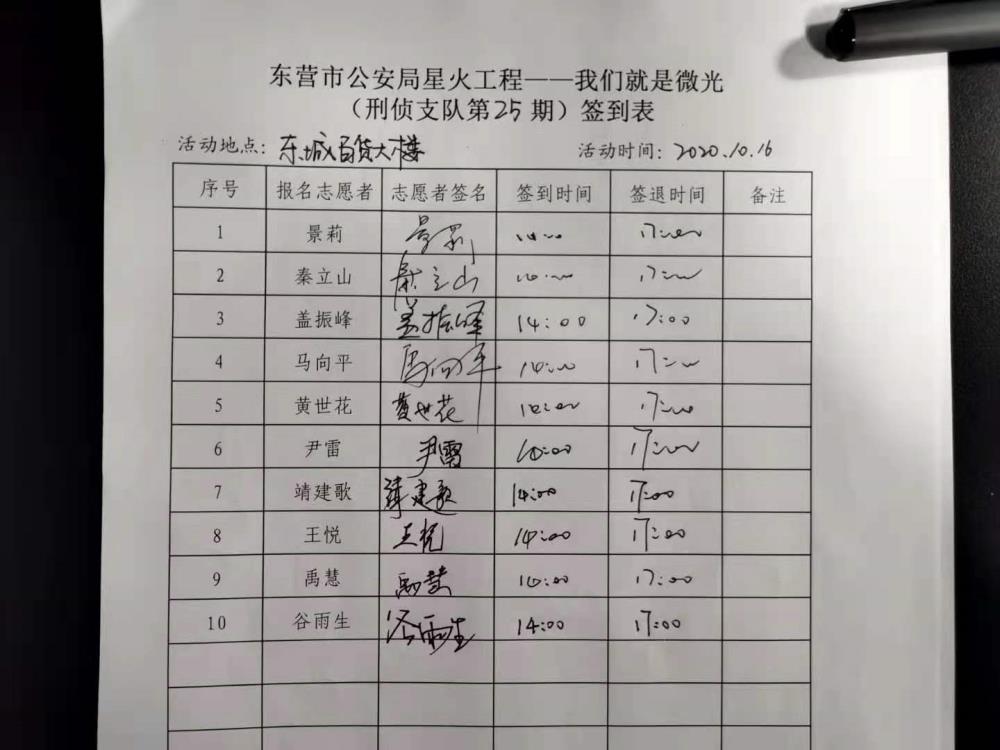 东营市公安局星火工程——我们就是微光
（刑侦支队第25期）签到表
活动地点：东城百货大楼 活动时间：2020.10.16
序号 报名志愿者 志愿者签名 签到时间 签退时间 备注
1 景莉 景莉 14:00 17:00
2 秦立山 秦立山 14:00 17:00
3 盖振峰 盖振峰 14:00 17:00
4 马向平 马向平 14:00 17:00
5 黄世花 黄世花 14:00 17:00
6 尹雷 尹雷 14:00 17:00
7 靖建歌 靖建歌 14:00 17:00
8 王悦 王悦 14:00 17:00
9 禹慧 禹慧 14:00 17:00
10 谷雨生 谷雨生 14:00 17:00